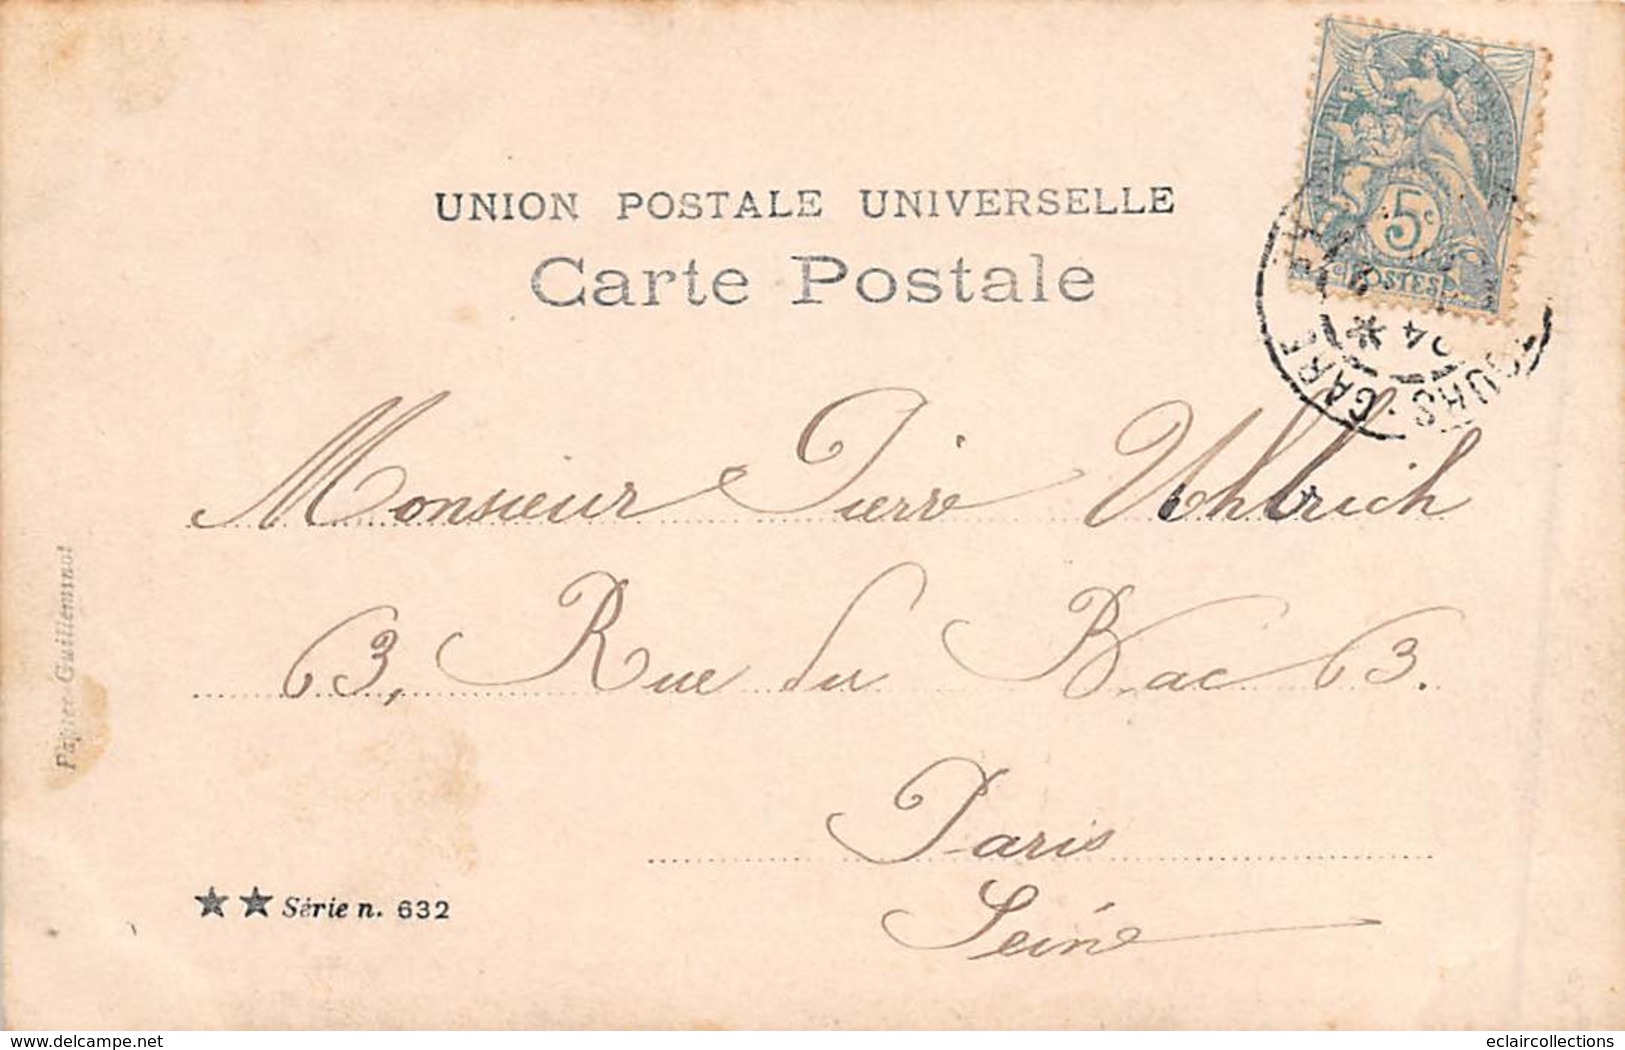 UNION POSTALE UNIVERSELLE
Carte Postale
5c
POSTES
TOURS · GARE
04
Monsieur Pierre Uhlrich
63, Rue du Bac 63.
Paris
Seine
Papier Guilleminot
★★ Série n. 632
delcampe.net
eclaircollections